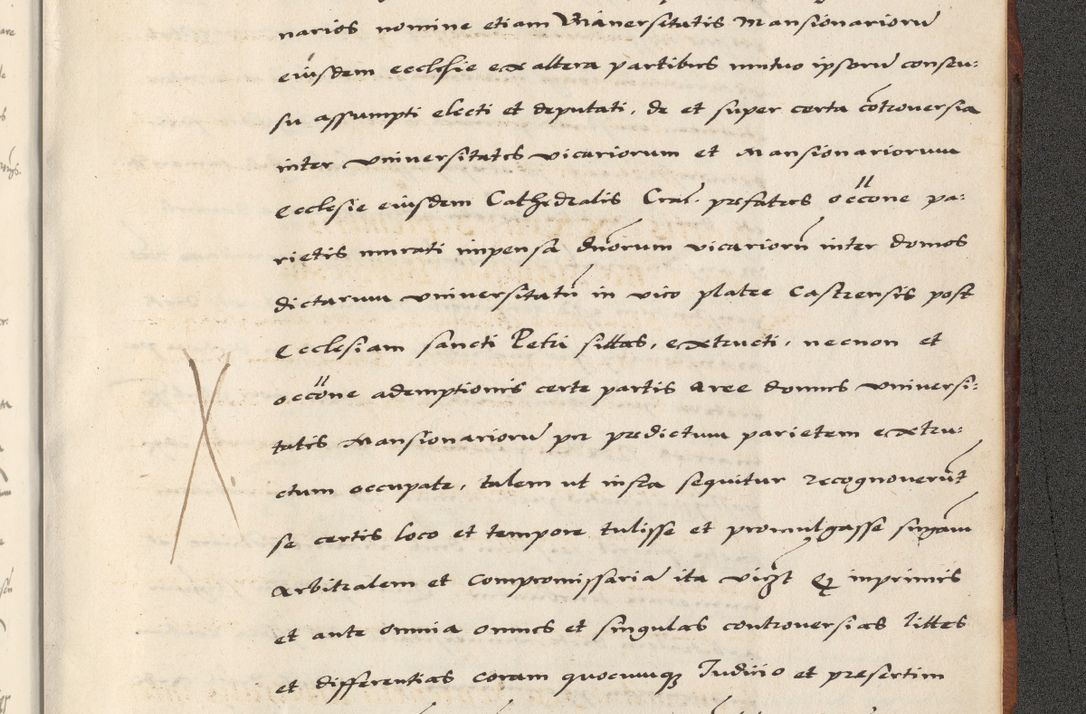 narios nomine etiam Vniuersitatis Mansionariorũ
eiusdem ecclesie ex altera partibus mutuo ipsorũ consen:
su assumpti electi et deputati, de et super certa cõtrouersia
inter vniuersitates vicariorum et Mansionariorum
Ecclesie eiusdem Cathedralis Cracٔ. prefatas occõne pa:
rietis murati impensa duorum vicariorũ inter domos
dictarum vniuersitatũ in vico platee Castrensis post
Ecclesiam sancti Petri sittas, extructi, necnon et
occõne ademptionis certe partis aree domus vniuersi:
tatis Mansionariorũ per predictum parietem extru:
ctum occupate, talem ut infra sequitur recognouerũt
se certis loco et tempore tulisse et promulgasse sn̄iam
Arbitralem et Compromissariã ita vigt̄ Qꝫ inprimis
et ante omnia omnes et singulas controuersias littes
et differentias coram quocunqꝫ Iudicio et presertim